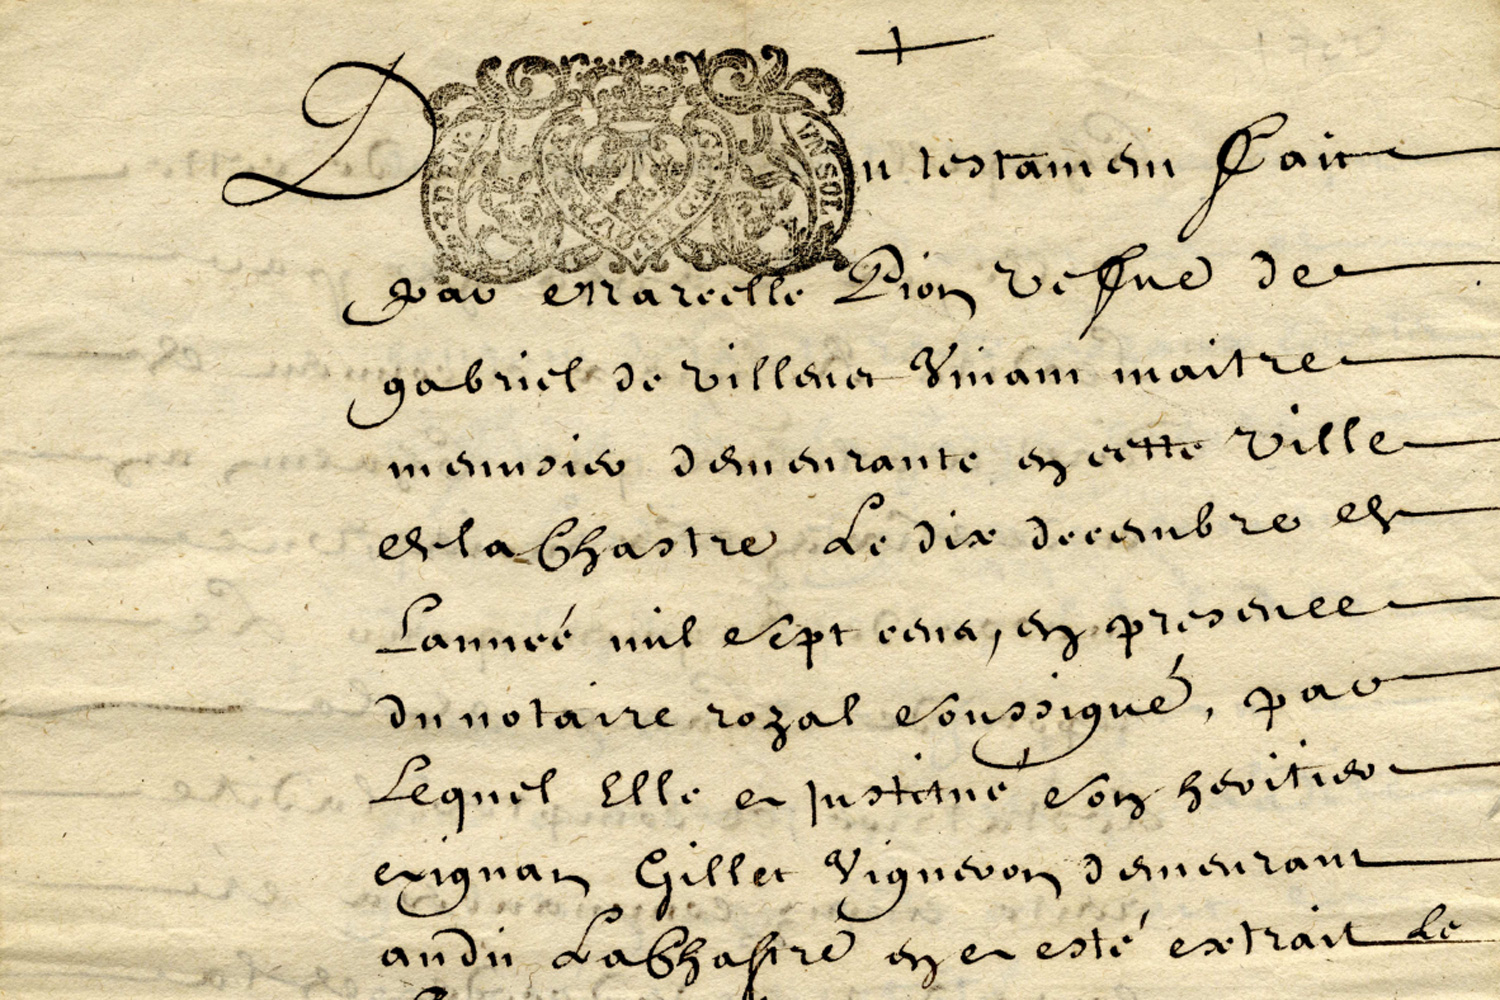 +
Du testament fait
par Marcelle Pion vefue de
gabriel de villenet viuant maitre
menusier demeurante en cette ville
de la Chastre Le dix decembre de
Lanneé mil sept cent, en presence
du notaire royal soussigné, par
Lequel Elle a Justitué son heritier
Gillet Vigneron demeurant
audit La Chastre en a esté extrait Le
UN SOL